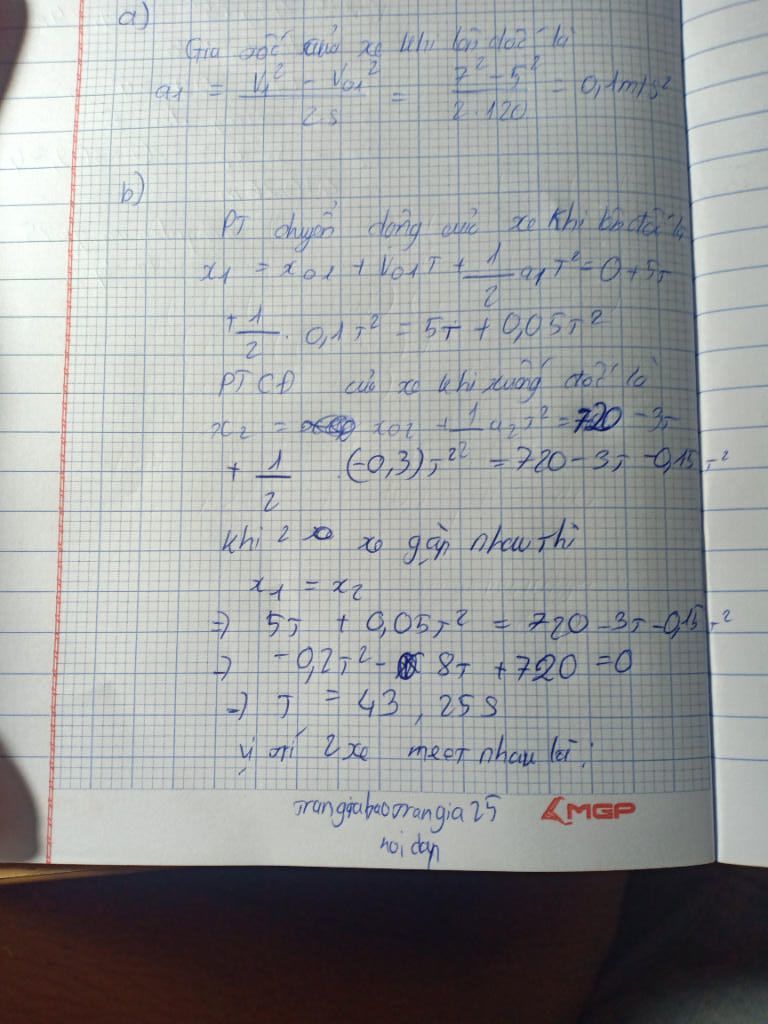 a)
Gia tốc của xe khi lên dốc là
a1 = V1² - V01² / 2s = 7² - 5² / 2.120 = 0,1m/s²
b)
PT chuyển động của xe khi lên dốc là
x1 = x01 + V01T + 1/2 a1T² = 0 + 5T
+ 1/2 . 0,1T² = 5T + 0,05T²
PTCĐ của xe khi xuống dốc là
x2 = x02 + 1/2 a2T² = 720 - 3T
+ 1/2 . (-0,3)T² = 720 - 3T - 0,15T²
khi 2 xe gặp nhau thì
x1 = x2
=> 5T + 0,05T² = 720 - 3T - 0,15T²
=> -0,2T² - 8T + 720 = 0
=> T = 43,25s
vị trí 2 xe meet nhau là:
trangiabaotrangia25
noi day
MGP